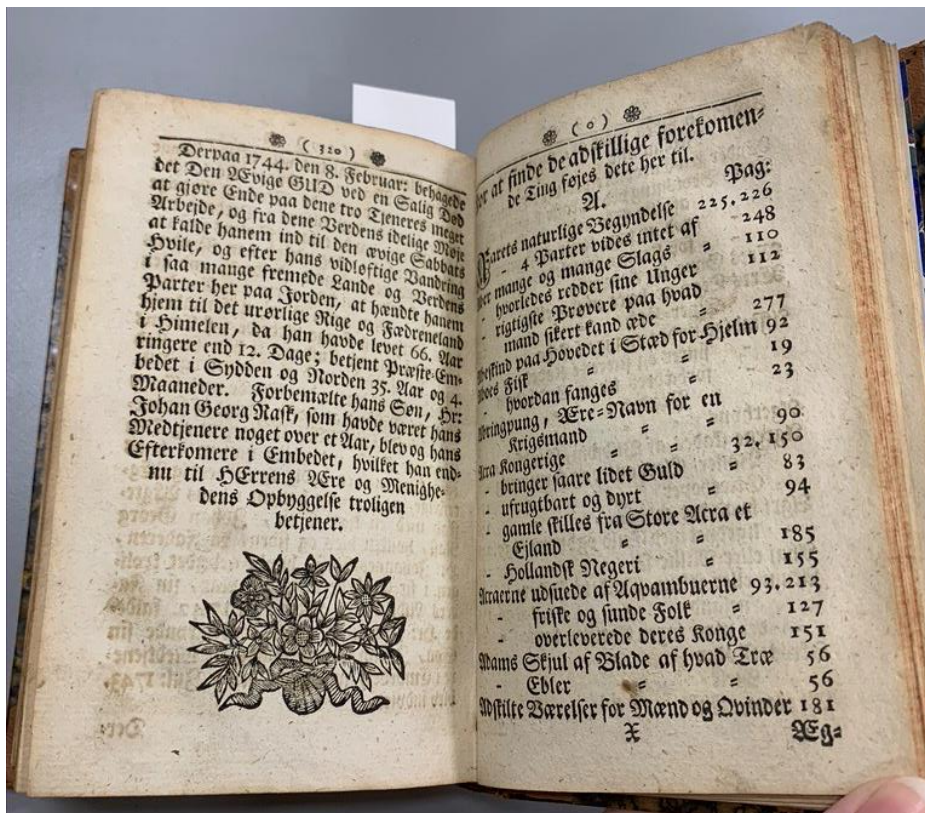 ( 320 )
Derpaa 1744. den 8. Februar: behagede
det Den Ævige GUD ved en Salig Død
at gjøre Ende paa dene tro Tjeneres meget
Arbejde, og fra dene Verdens idelige Møje
at kalde hanem ind til den ævige Sabbats
Hvile, og efter hans vidløftige Vandring
i saa mange fremede Lande og Verdens
Parter her paa Jorden, at hændte hanem
hjem til det urørlige Rige og Fædreneland
i Himelen, da han havde levet 66. Aar
ringere end 12. Dage; betjent Præste-Em-
bedet i Sydden og Norden 35. Aar og 4.
Maaneder. Forbemælte hans Søn, Hr:
Johan Georg Rask, som havde været hans
Medtjenere noget over et Aar, blev og hans
Efterkomere i Embedet, hvilket han end-
nu til HErrens Ære og Menighe-
dens Opbyggelse troligen
betjener.
( 0 )
at finde de adskillige forekomen-
de Ting føjes dete her til.
A. Pag:
Aarets naturlige Begyndelse 225. 226
- 4 Parter vides intet af - 248
mange og mange Slags - 110
- hvorledes redder sine Unger 112
- rigtigste Prøvere paa hvad
mand sikert kand æde - 277
paa Hovedet i Stæd for Hjelm 92
Fisk - - 19
- hvordan fanges - 23
Ære-Navn for en
Krigsmand - - 90
Acra Kongerige - - 32. 150
- bringer saare lidet Guld - 83
- ufrugtbart og dyrt - 94
- gamle skilles fra Store Acra et
Ejland - - 185
- Hollandsk Negeri - 155
Acraerne udsuede af Aqvambuerne 93. 213
- friske og sunde Folk - 127
- overleverede deres Konge 151
Adams Skjul af Blade af hvad Træ 56
- Ebler - - 56
Adskilte Værelser for Mænd og Qvinder 181
X Æg-